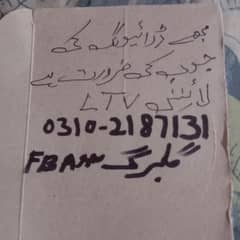 مجھے ڈرائیونگ کی
جوب کی ضرورت ہے
لائسنس LTV
0310-2187131
گلبرگ FBA